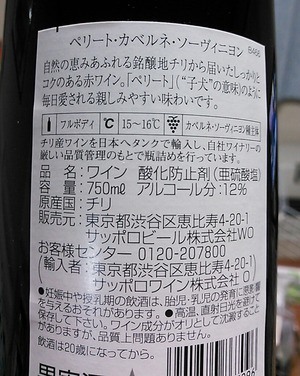 ペリート・カベルネ・ソーヴィニヨン B466
自然の恵みあふれる銘醸地チリから届いたしっかりと
コクのある赤ワイン。「ペリート」(“子犬”の意味)のように
毎日愛される親しみやすい味わいです。
フルボディ ℃ 15～16℃ カベルネ・ソーヴィニヨン種主体
チリ産ワインを日本へタンクで輸入し、自社ワイナリーの
厳しい品質管理のもとで瓶詰めを行っています。
品名：ワイン 酸化防止剤(亜硫酸塩)
容量：750ml アルコール分：12%
原産国：チリ
販売元：東京都渋谷区恵比寿4-20-1
サッポロビール株式会社WO
お客様センター 0120-207800
(輸入者：東京都渋谷区恵比寿4-20-1
サッポロワイン株式会社 O)
●妊娠中や授乳期の飲酒は、胎児・乳児の発育に悪影響
を与えるおそれがあります。●高温、直射日光を避けて
保存して下さい。ワイン成分がオリとして沈澱するこ
とがありますが、品質上問題ありません。
飲酒は20歳になってから。